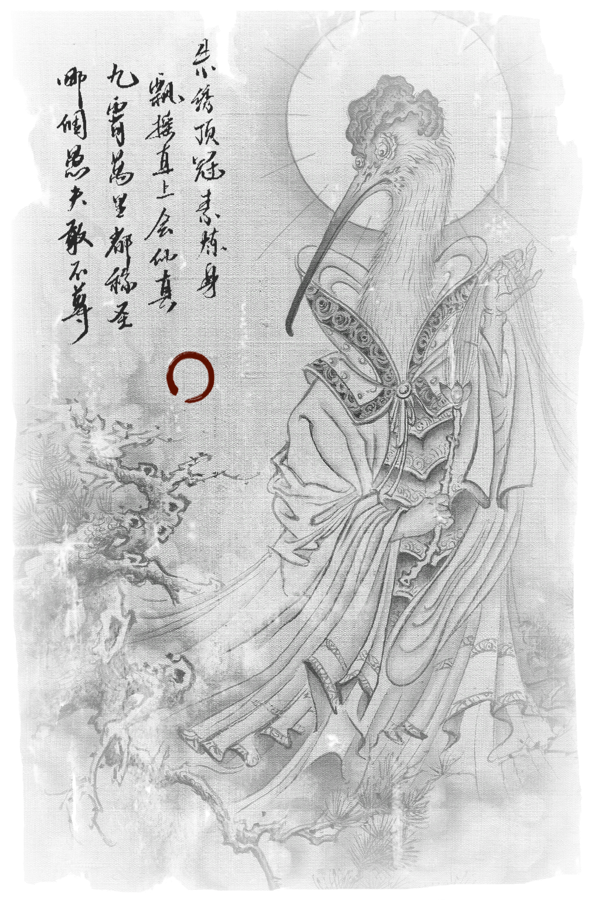 朱绣顶冠素炼身
飘摇直上会仙真
九霄万里都称圣
哪個愚夫敢不尊